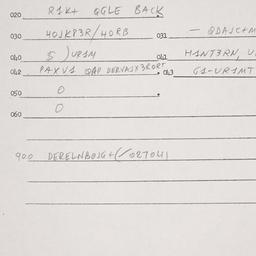 020 R1K+ QGLE BACK
030 4OJKP3R/4ORB 031 — QDAJC+M
040 5 )UR1M 041 H1NT3RN, U
042 PAXV1 QAP DERVAJX3RORT 043 G1-UR1MT
050 0
0
060
900 DERELNBOJG+(/027041